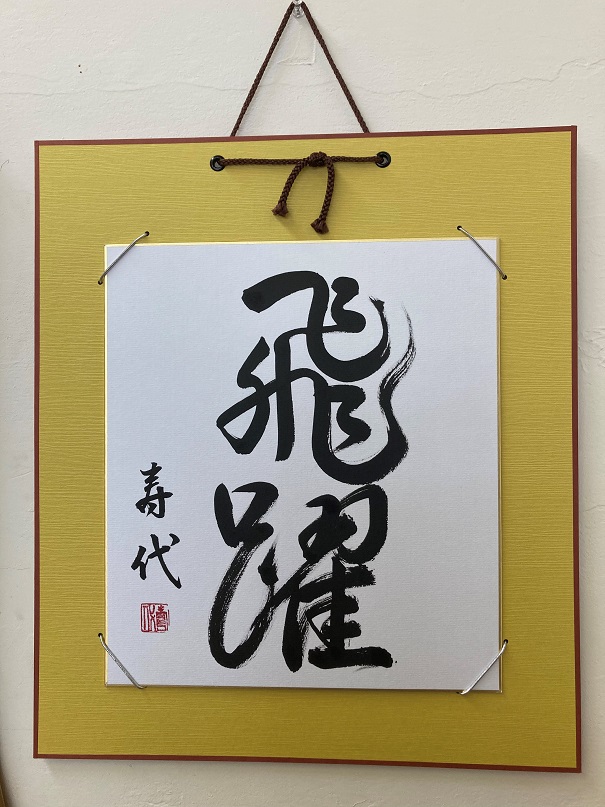 飛躍
寿代